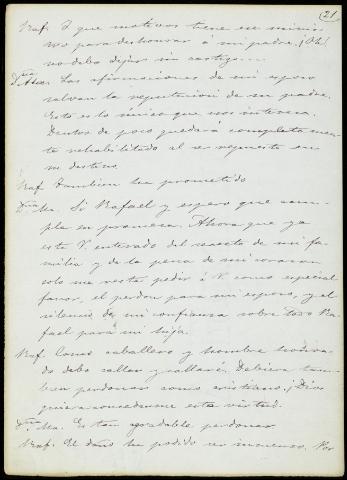 (21
Raf. Y que motivos tiene ese minis
tro para deshonrar á mi padre. ¡Oh!
no debo dejar sin castigo....
D.ña Ma. Las afirmaciones de mi esposo
salvan la reputacion de su padre.
Esto es lo único que nos interesa.
Dentro de poco quedará completamen
te rehabilitado al ser repuesto en
su destino.
Raf. Tambien ha prometido
D.ña Ma. Si Rafael y espero que cum-
pla su promesa. Ahora que ya
está V. enterado del secreto de mi fa
milia y de la pena de mi corazon
solo me resta pedir á V como especial
favor, el perdon para mi esposo, y el
silencio de mi confianza sobre todo Ra
fael para mi hija.
Raf. Como caballero y hombre honra
do debo callar y callaré. Debiera tam
bien perdonar como cristiano. ¡Dios
quiera concederme esta virtud.
D.ña Ma. Es tan agradable perdonar
Raf. El daño ha podido ser inmenso. Por